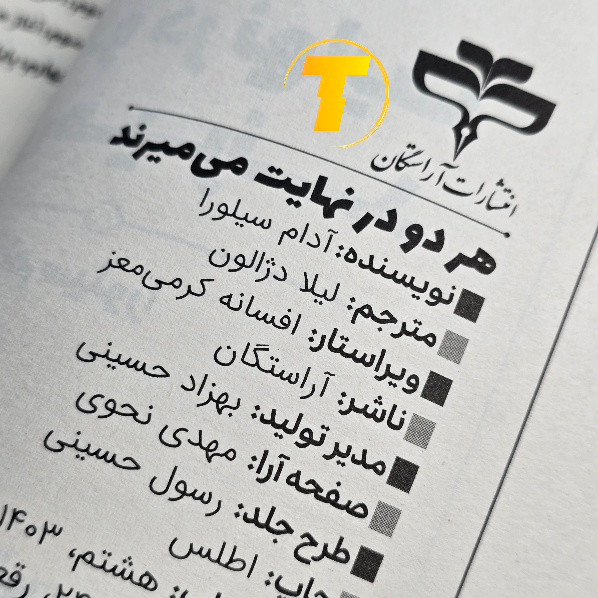 T
انتشارات آراستگان
هر دو در نهایت می‌میرند
نویسنده: آدام سیلورا
مترجم: لیلا دژالون
ویراستار: افسانه کرمی‌مغز
ناشر: آراستگان
مدیر تولید: بهزاد حسینی
صفحه‌آرا: مهدی نحوی
طرح جلد: رسول حسینی
چاپ: اطلس
هشتم، ۱۴۰۳